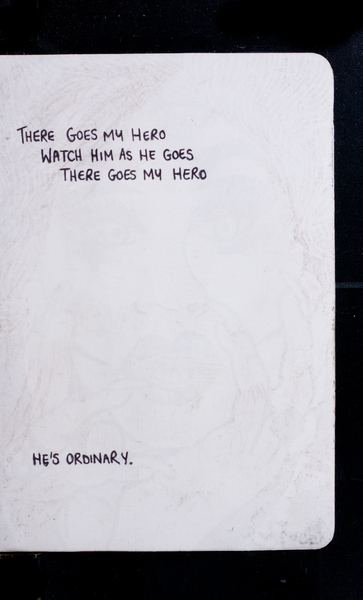 THERE GOES MY HERO
WATCH HIM AS HE GOES
THERE GOES MY HERO
HE'S ORDINARY.